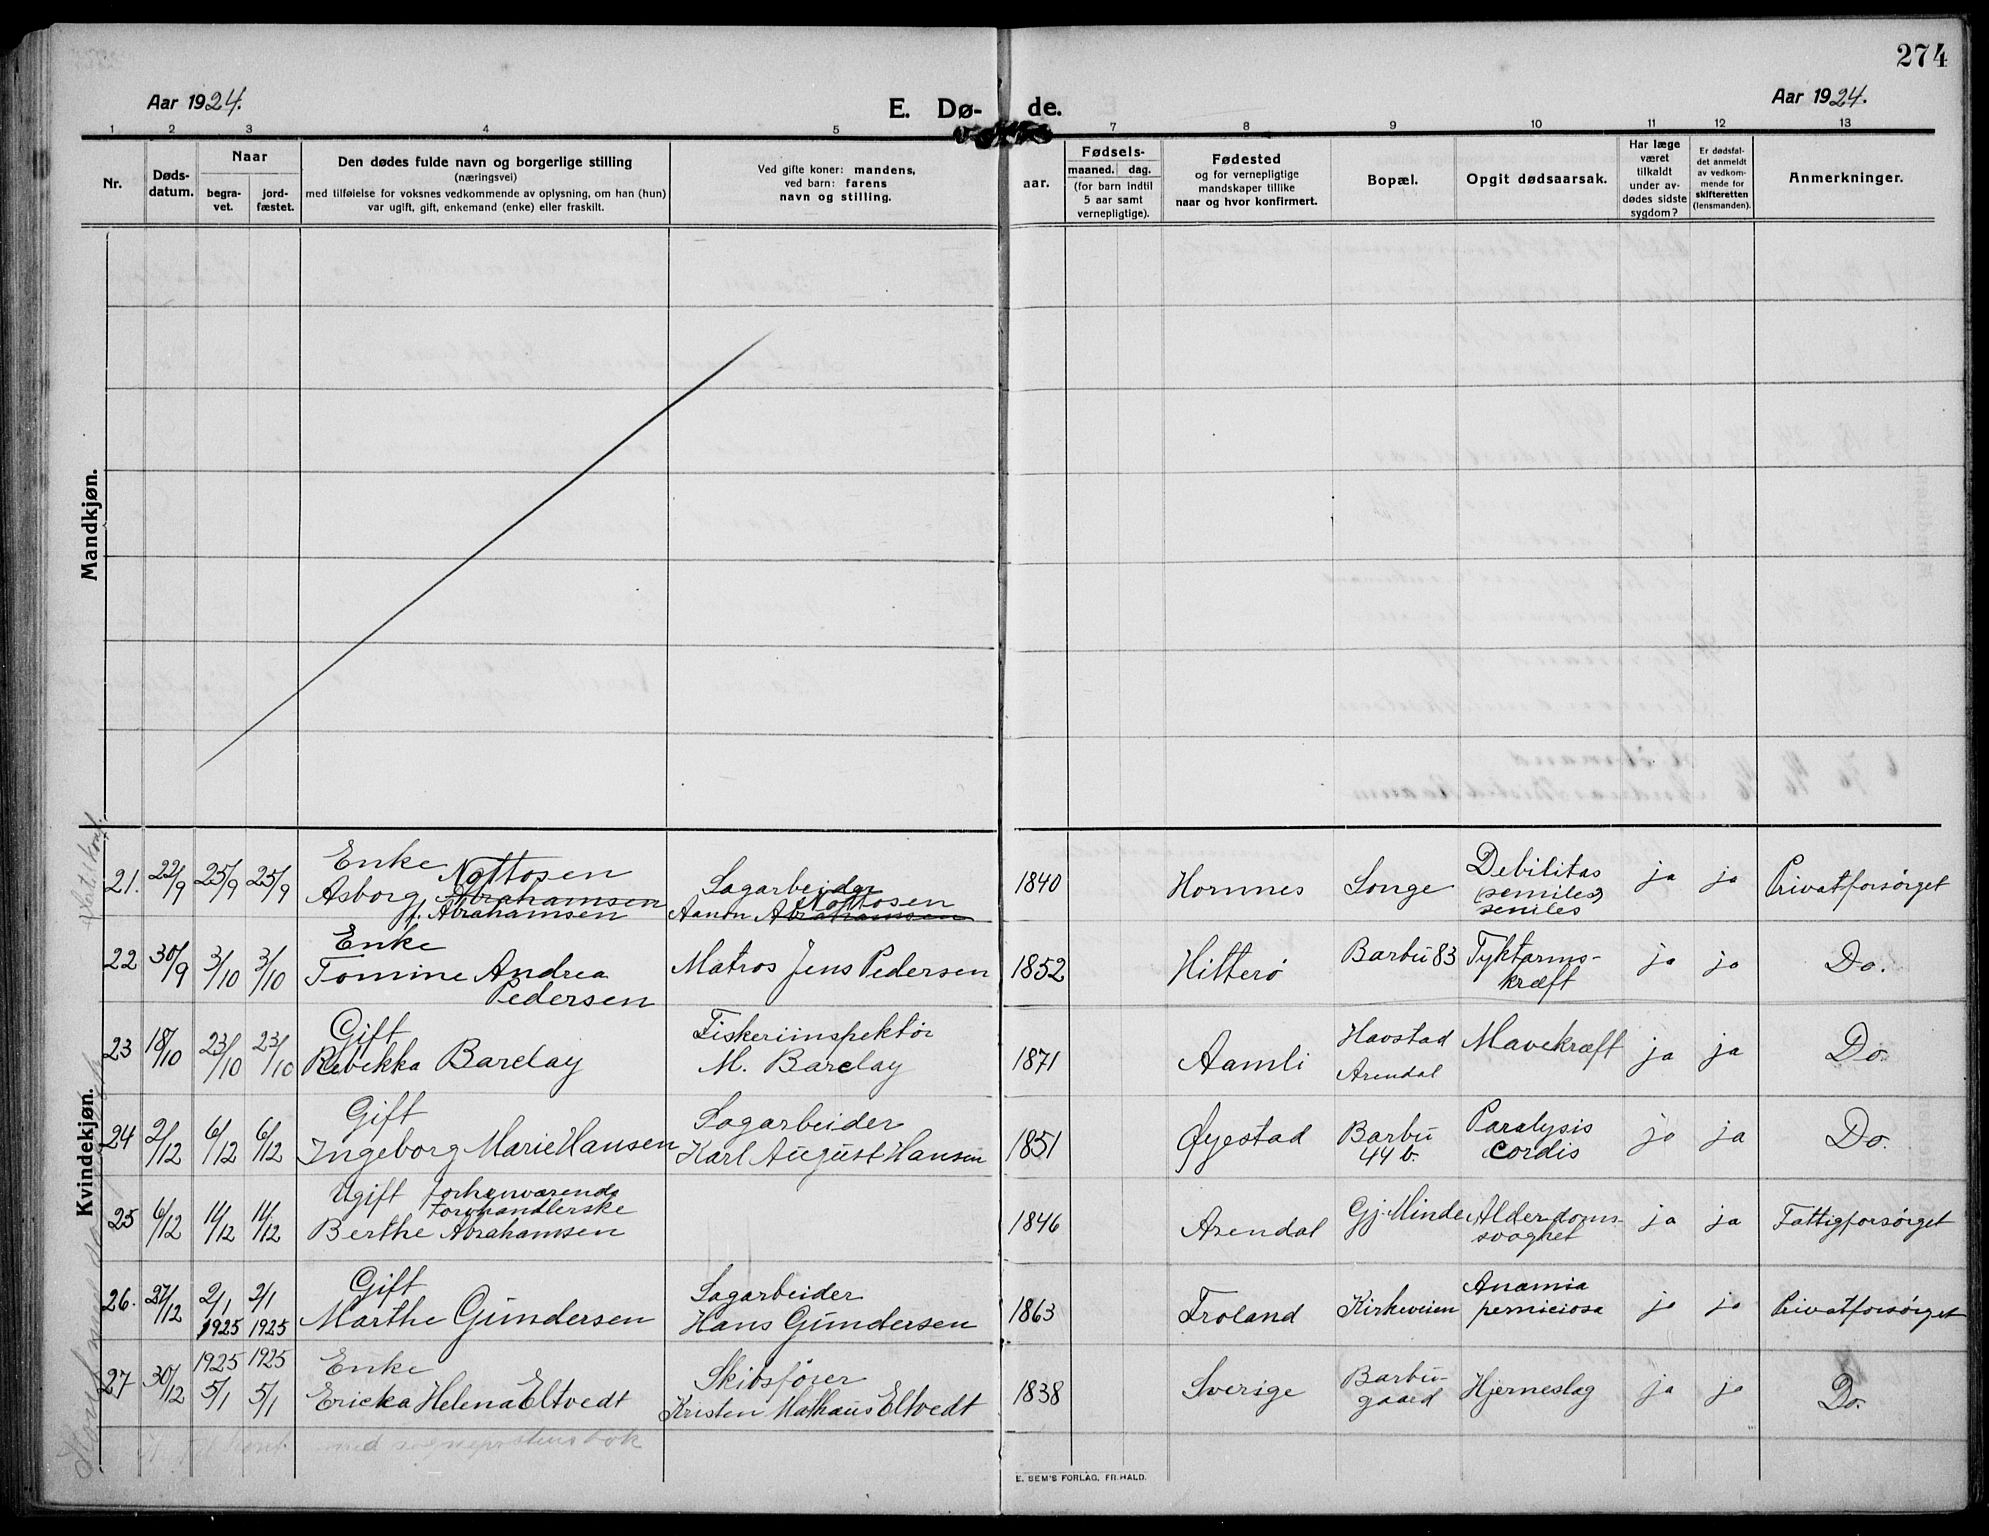 274
Aar 1924.
E. Dø- de.
Aar 1924.
1 2 3 4 5 7 8 9 10 11 12 13
Nr.
Døds-
datum.
Naar
begra-
vet.
jord-
fæstet.
Den dødes fulde navn og borgerlige stilling
(næringsvei)
med tilføielse for voksnes vedkommende av oplysning, om han (hun)
var ugift, gift, enkemand (enke) eller fraskilt.
Ved gifte koner: mandens,
ved barn: farens
navn og stilling.
aar.
Fødsels-
maaned. dag.
(for barn indtil
5 aar samt
vernepligtige).
Fødested
og for vernepligtige
mandskaper tillike
naar og hvor konfirmert.
Bopæl.
Opgit dødsaarsak.
Har læge
været
tilkaldt
under av-
dødes sidste
sygdom?
Er dødsfal-
det anmeldt
av vedkom-
mende for
skifteretten
(lensmanden).
Anmerkninger.
Mandkjøn.
Kvindekjøn.
21. 22/9 25/9 25/9 Enke Nottosen
Asborg Abrahamsen
f. Abrahamsen
Sagarbeider
Nottosen
Aanon Abrahamssen
1840 Hornnes Songe Debilitas
(semiles)
seniles
ja ja Privatforsørget
22 30/9 3/10 3/10 Enke
Tomine Andrea
Pedersen
Matros Jens Pedersen 1852 Hitterø Barbu 83 Tyktarms-
kræft
ja ja Do.
23 18/10 23/10 23/10 Gift
Rebekka Barclay
Fiskeriinspektør
M. Barclay
1871 Aamli Havstad
Arendal
Mavekræft ja ja Do.
24 2/12 6/12 6/12 Gift
Ingeborg Marie Hansen
Sagarbeider
Karl August Hansen
1851 Øyestad Barbu
44 b.
Paralysis
cordis
ja ja Do.
25 6/12 11/12 11/12 Ugift forhenværende
Torvhandlerske
Berthe Abrahamsen
1846 Arendal Gj. Minde Alderdoms-
svaghet
ja ja Fattigforsørget
26. 27/12 2/1
1925
2/1
1925
Gift
Marthe Gundersen
Sagarbeider
Hans Gundersen
1863 Froland Kirkeveien Anæmia
perniciosa
ja ja Privatforsørget
27 30/12 1925
5/1
1925
5/1
Enke
Ericka Helena Eltvedt
Skibsfører
Kristen Mathæus Eltvedt
1838 Sverige Barbu-
gaard
Hjerneslag ja ja Do.
med sogneprestens bok
E. SEM'S FORLAG, FR.HALD.